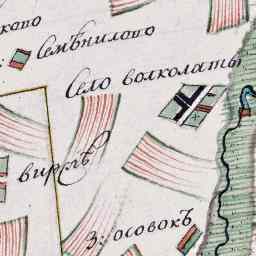 ково
Семѣнилово
Село волколаты
вирлѣ
3: осовокъ